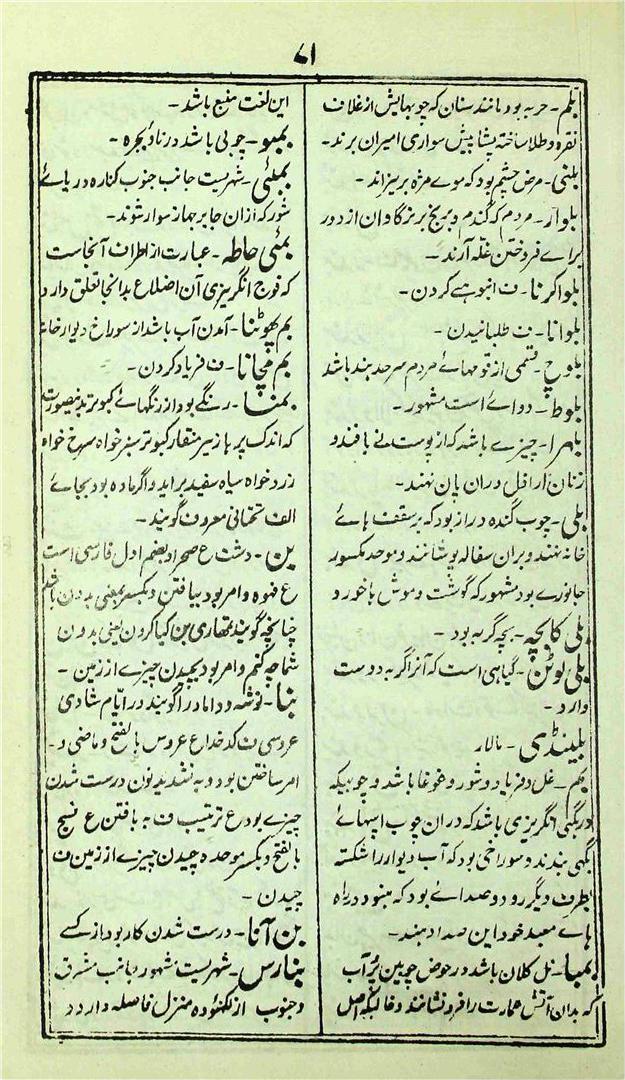 ۷۱
بلم - حربه بود مانند سنان که چوبهایش از غلاف
نقره و طلا ساخته پیشاپیش سواری امیران برند -
بلنی - مرض چشم بود که موے مژه بریزاند -
بلوار - مردم که گندم و برنج بر بزگاوان از دور
براے فروختن غله آرند -
بلوا کرنا - ف انبوهے کردن -
بلوانا - ف طلبانیدن -
بلوچ - قسمی از قومهاے مردم سرحد سند باشد
بلوط - دواے است مشهور -
بلهرا - چیزے باشد که از پوست نے بافند و
زنان اراذل دران پان نهند -
بلی - چوب گنده دراز بود که بر سقف هاے
خانه نهند و بران سفاله پوشانند و موحده مکسور
جانورے بود مشهور که گوشت و موش باخورد
بلی کا بچه - بچه گربه بود -
بلی لوٹن - گیاهی است که آنرا گربه دوست
دارد -
بلینڈی - مالار
بم - غل و فریاد و شور و غوغا باشد و چوبیکه
در بگهی انگریزی باشد که دران چوب اسپهاے
بگهی بندند و سوراخی بود که آب دیوار را شکسته
بطرف دیگر رود و صدائے بود که هنود در راه
هاے معبد خود این صدا دهند -
بمبا - نل کلان باشد در حوض چوبین پر آب
که بدان آتش عمارت را فرو نشانند و غالباً که اصل
این لغت منبع باشد -
بمبو - چوبی باشد در ناؤ بجره -
بمبئی - شهریست جانب جنوب کناره دریاے
شور که ازان جا بر جهاز سوار شوند -
بمبئی حاطه - عبارت از اطراف آنجاست
که فوج انگریزی آن اضلاع بدانجا تعلق دارد
بم پھوٹنا - آمدن آب باشد از سوراخ دیوار خانه
بم مچانا - ف فریاد کردن -
بمنا - رنگے بود از رنگهاے کبوتر بدینصورت
که اندک پر بازیر منقار کبوتر سبز خواه سرخ خواه
زرد خواه سیاه سفید برآید و اگر ماده بود بجاے
الف تحتانی معروف گویند -
بن - دشت ع صحرا و بضم اول فارسی است
ع قهوه و امر بود ببافتن و بکسر بمعنی بدون باشد
چنانچه گویند تمهاری بن کیا کرون یعنی بدون
شما چه کنم و امر بود بچیدن چیزے از زمین -
بنا - نوشه و داماد را گویند در ایام شادی
عروسی ف کدخدا ع عروس بالفتح و ماضی و
امر ساختن بود و به تشدید نون درست شدن
چیزے بود ع ترتیب ف به بافتن ع نسج
بالفتح و بکسر موحده چیدن چیزے از زمین ف
چیدن -
بن آنا - درست شدن کار بود از کسے
بنارس - شهریست مشهور بجانب مشرق
و جنوب از لکهنؤ ده منزل فاصله دارد